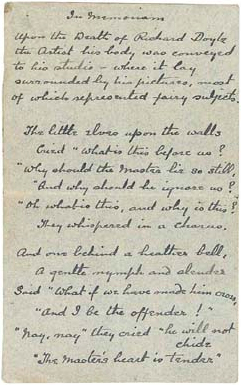 In Memoriam
Upon the Death of Richard Doyle
the Artist his body was conveyed
to his studio - where it lay
surrounded by his pictures, most
of which represented fairy subjects.
The little elves upon the walls
Cried "What is this before us?
"Why should the Master lie so still.
"And why should he ignore us?
"Oh what is this, and why is this?"
They whispered in a chorus.
And one behind a heather bell,
A gentle nymph and slender
Said "What if we have made him cross,
"And I be the offender!"
"Nay, nay" they cried "he will not
chide
"The Master's heart is tender"